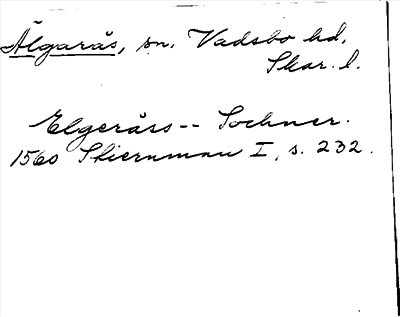 Älgarås, sn. Vadsbo hd.
Skar. l.
Elgeråss-- Sochner.
1560 Skiernman I, s. 232.